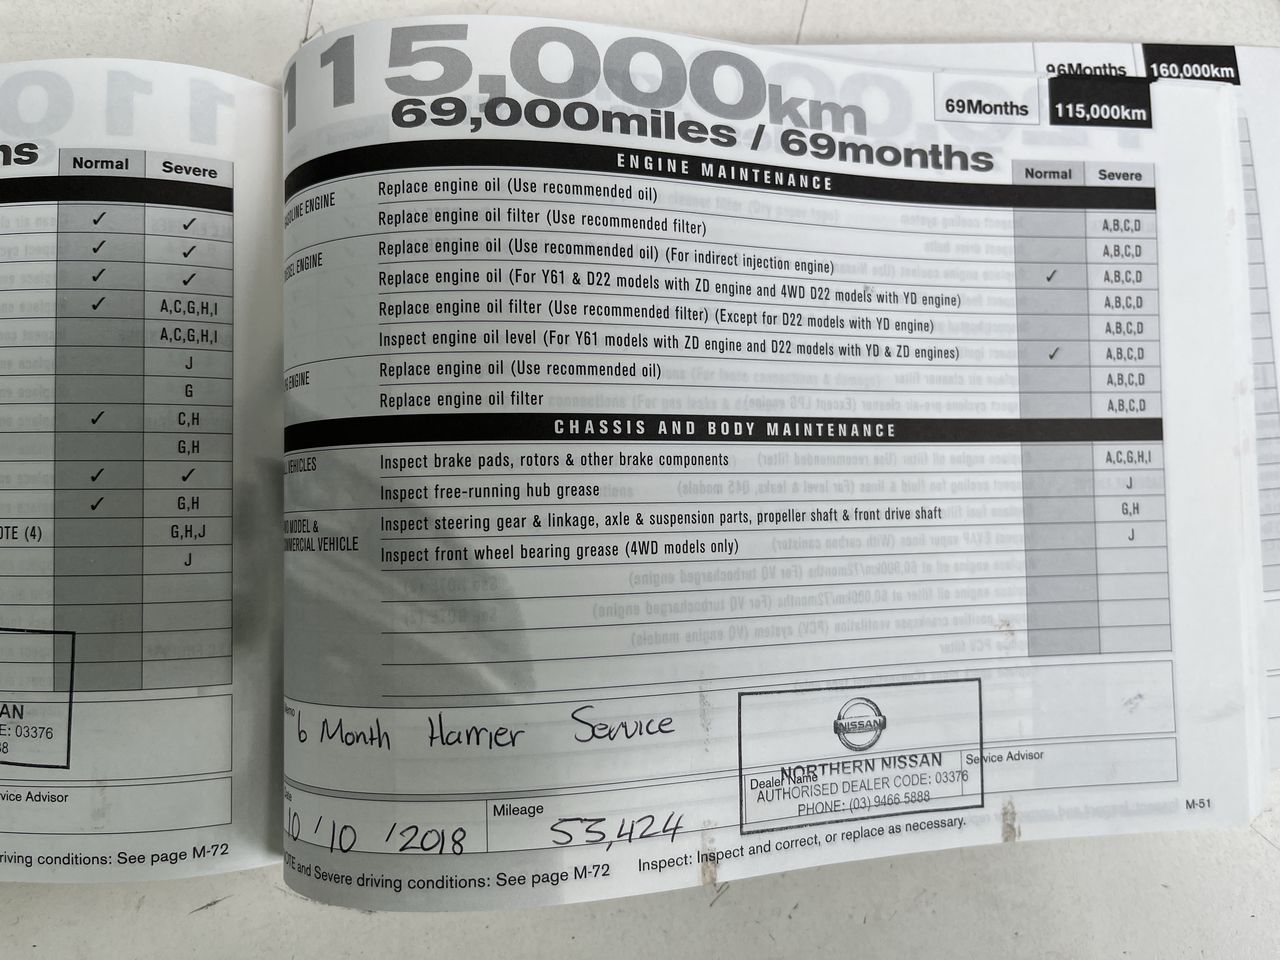 ns
Normal Severe
✓ ✓
✓ ✓
✓ ✓
✓ A,C,G,H,I
A,C,G,H,I
J
G
✓ C,H
G,H
✓ ✓
✓ G,H
OTE (4) G,H,J
J
AN
E: 03376
vice Advisor
riving conditions: See page M-72
96Months 160,000km
115,000km
69,000miles / 69months
69Months 115,000km
ENGINE MAINTENANCE Normal Severe
Replace engine oil (Use recommended oil) A,B,C,D
Replace engine oil filter (Use recommended filter) A,B,C,D
Replace engine oil (Use recommended oil) (For indirect injection engine) ✓ A,B,C,D
Replace engine oil (For Y61 & D22 models with ZD engine and 4WD D22 models with YD engine) A,B,C,D
Replace engine oil filter (Use recommended filter) (Except for D22 models with YD engine) A,B,C,D
Inspect engine oil level (For Y61 models with ZD engine and D22 models with YD & ZD engines) ✓ A,B,C,D
Replace engine oil (Use recommended oil) A,B,C,D
Replace engine oil filter A,B,C,D
CHASSIS AND BODY MAINTENANCE
VEHICLES Inspect brake pads, rotors & other brake components A,C,G,H,I
Inspect free-running hub grease J
MODEL & Inspect steering gear & linkage, axle & suspension parts, propeller shaft & front drive shaft G,H
VEHICLE Inspect front wheel bearing grease (4WD models only) J
6 Month Harrier Service
NISSAN
NORTHERN NISSAN
Dealer Name
AUTHORISED DEALER CODE: 03376
PHONE: (03) 9466 5888
Service Advisor
10 / 10 / 2018
Mileage
53,424
and Severe driving conditions: See page M-72
Inspect: Inspect and correct, or replace as necessary.
M-51